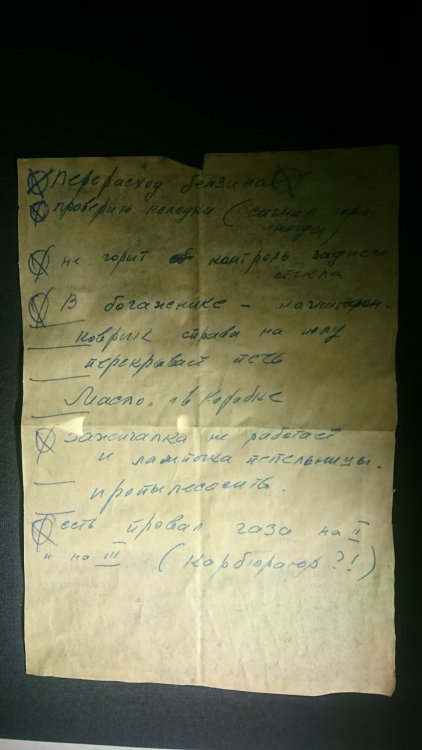 Перерасход бензина
проверить колодки (сигнал горит
иногда)
не горит контроль заднего
стекла
В богаженике - магнитофон.
коврик справа на полу
перекрывает печь
Масло, в коробке
Зажигалка не работает
и лампочка пепельницы.
пропылесосить.
есть провал газа на II
" на III (Карбюратор?!)